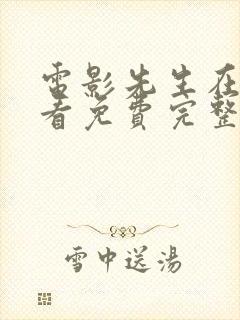 雷影先生在
看免費完整
雪中送湯